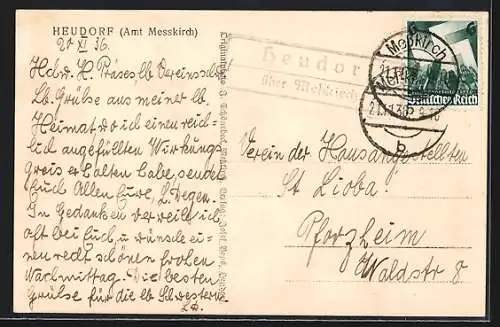 HEUDORF (Amt Messkirch)
21 XI 36.
Hchw. H. Präses, lb Vereinsschw.
Lb. Grüße aus meiner lb.
Heimat wo ich einen reich-
lich angefüllten Wirkungs
kreis erhalten habe, sendet
Euch Allen Eure, L. Degen.
In Gedanken verweile ich
oft bei Euch, u wünsche ei-
nen recht schönen frohen
Nachmittag. Die besten
Grüße für die lb Schwestern.
Heudorf
über Meßkirch
Meßkirch
Deutsches Reich
6
b
Verein der Hausangestellten
St Lioba.
Pforzheim
Waldstr 8